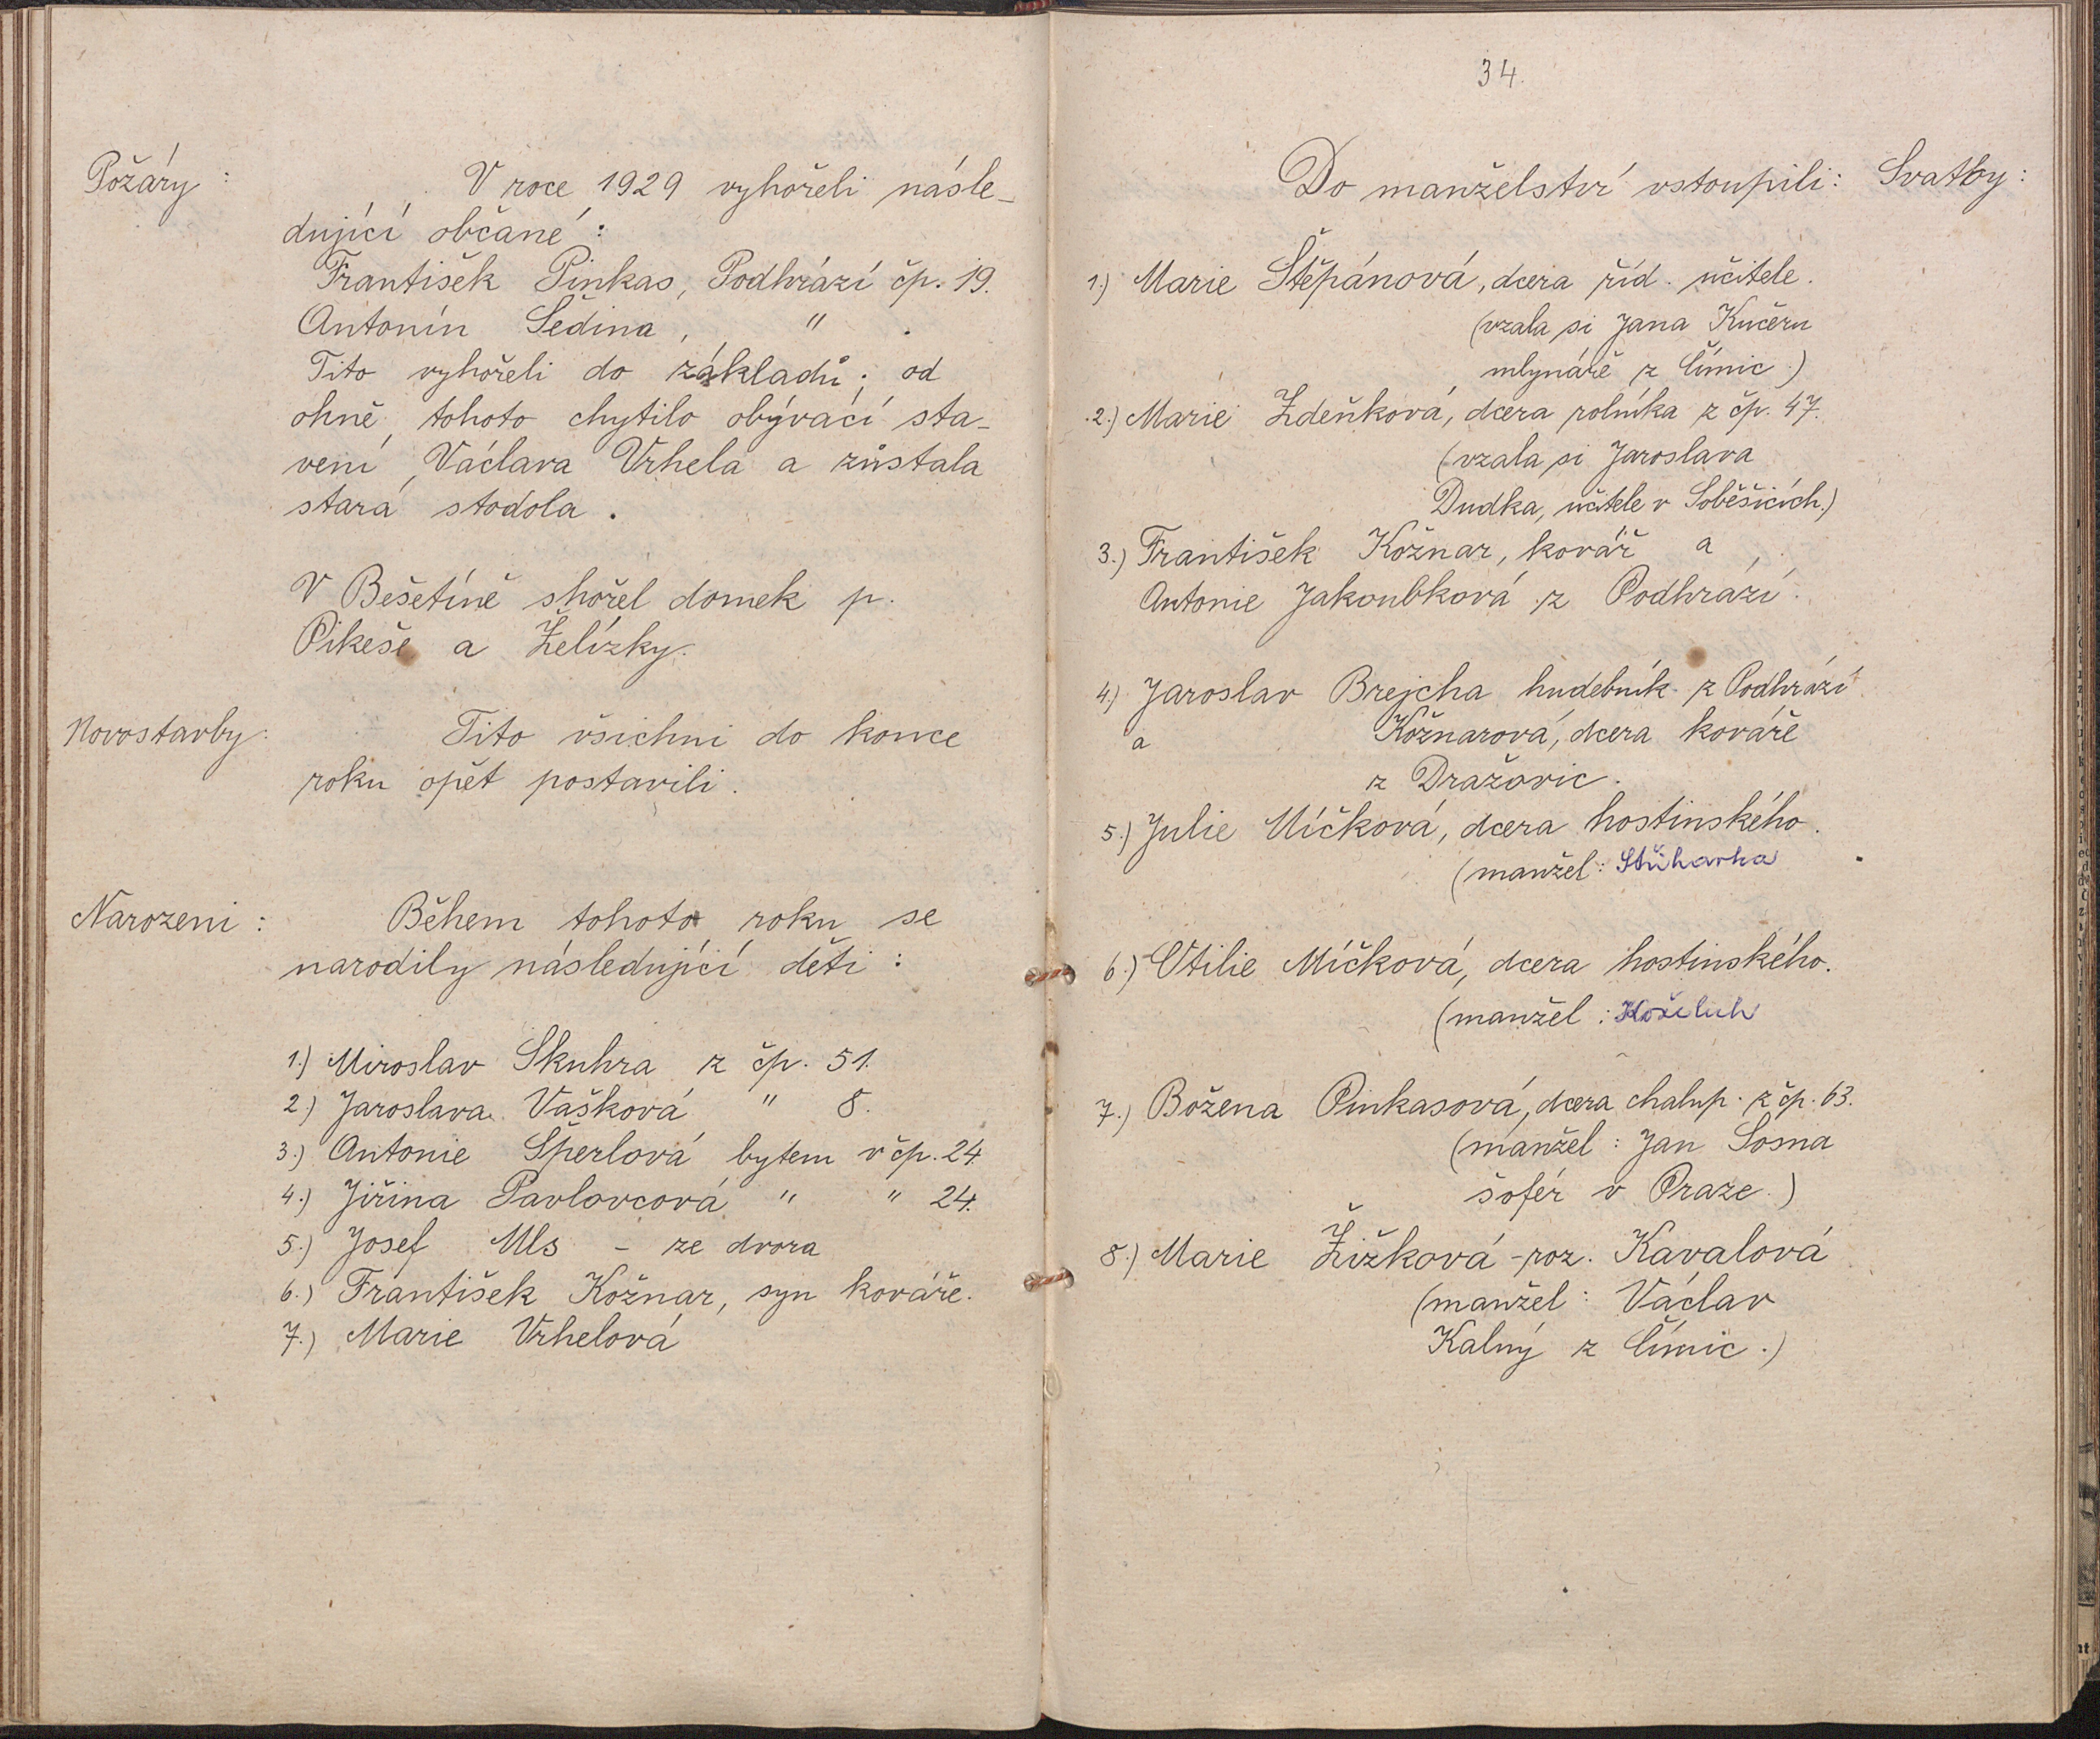 Požáry:
V roce 1929 vyhořeli násle-
dující občané:
František Pinkas, Podhrází čp. 19.
Antonín Šedina, " .
Tito vyhořeli do základů; od
ohně tohoto chytilo obývací sta-
vení Václava Vrhela a zůstala
stará stodola.
V Bešetíně shořel domek p.
Pikeše a Želízky.
Novostavby:
Tito všichni do konce
roku opět postavili.
Narozeni:
Během tohoto roku se
narodily následující děti:
1.) Miroslav Skuhra z čp. 51.
2.) Jaroslava Vašková " 8.
3.) Antonie Šperlová bytem v čp. 24.
4.) Jiřina Pavlovcová " " 24.
5.) Josef Mls - ze dvora
6.) František Kožnar, syn kováře.
7.) Marie Vrhelová
34.
Do manželství vstoupili: Svatby:
1.) Marie Štěpánová, dcera říd. učitele.
(vzala si Jana Kučeru
mlynáře z Čímic.)
2.) Marie Zdeňková, dcera rolníka z čp. 47.
(vzala si Jaroslava
Dudka, učitele v Soběšicích.)
3.) František Kožnar, kovář a
Antonie Jakoubková z Podhrází.
4.) Jaroslav Brejcha hudebník z Podhrází
a Kožnarová, dcera kováře
z Dražovic.
5.) Julie Míčková, dcera hostinského.
(manžel:
6.) Otilie Míčková, dcera hostinského.
(manžel: Koželuh
7.) Božena Pinkasová, dcera chalup. z čp. 63.
(manžel: Jan Sosna
šofér v Praze.)
8.) Marie Žižková - roz. Kavalová
(manžel: Václav
Kalný z Čímic.)